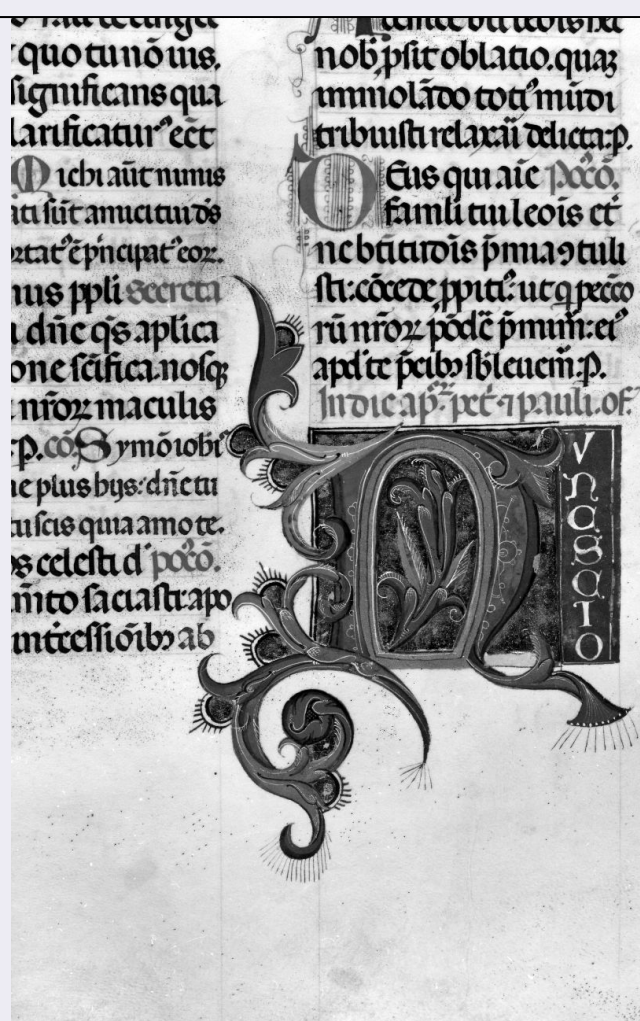 quo tu nō uis.
significans qua
larificatur᾿ ect
Michi aūt nimis
ati sūt amici tui ds̄
ortat᾿ ē pͥncipat᾿ eoꝝ.
nus ppli Secreta
dn̄e qs̄ aplica
one sc̄ifica. nosqꝫ
nr̄oꝝ maculis
:P. cō. Symō iohī
plus hijs: dn̄e tu
tu scis quia amo te.
os celesti d᾿ pocō.
mīto saciasti: apo
int᾿cessiōibꝫ ab
nob᾿ ꝓsit oblatio. quaꝫ
immolādo toti᾿ mūdi
tribuisti relaxari delicta: P.
Deus qui aīe pocō.
famli tui leoīs et᾿
sti: cōcede ꝓpiti᾿: ut q̄ pecco
rū nr̄oꝝ pōdē p̄mim᷑: ei᾿
apd᾿ te p̄cibꝫ sbleuem᷑: P.
In die ap᷑. pet᾿ ⁊ pauli. of᾿.
NVNC SCIO